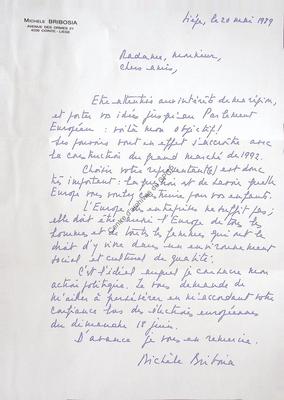 MICHÈLE BRIBOSIA
AVENUE DES ORMES 21
4200 COINTE - LIÈGE
Liège, le 20 mai 1989
Madame, Monsieur,
Chers amis,
Etre attentive aux intérêts de ma région,
et porter vos idées jusqu'au Parlement
Européen : voilà mon objectif!
Ses pouvoirs vont en effet s'accroître avec
la construction du grand marché de 1992.
Choisir votre représentant(e) est donc
très important : la question est de savoir quelle
Europe vous voulez construire pour vos enfants.
L'Europe des entreprises ne suffit pas ;
elle doit être aussi l'Europe de tous les
hommes et de toutes les femmes qui ont le
droit d'y vivre dans un environnement
social et culturel de qualité.
C'est l'idéal auquel je consacre mon
action politique. Je vous demande de
m'aider à persévérer en m'accordant votre
confiance lors des élections européennes
du dimanche 18 juin.
D'avance je vous en remercie.
Michèle Bribosia